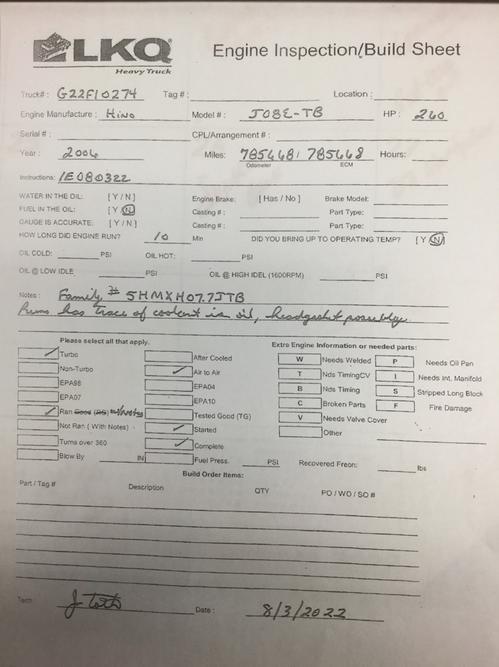 LKQ®
Heavy Truck
Engine Inspection/Build Sheet
Truck# : G22F10274 Tag # : Location :
Engine Manufacture : Hino Model # : J08E-TB HP : 260
Serial # : CPL/Arrangement # :
Year : 2006 Miles: 785668 / 785668 Hours:
Odometer ECM
Instructions: IE080322
WATER IN THE OIL: [ Y / N ] Engine Brake: [ Has / No ] Brake Model:
FUEL IN THE OIL: [ Y / N ] Casting # : Part Type:
GAUGE IS ACCURATE: [ Y / N ] Casting # : Part Type:
HOW LONG DID ENGINE RUN? 10 Min DID YOU BRING UP TO OPERATING TEMP? [ Y / N ]
OIL COLD: PSI OIL HOT: PSI
OIL @ LOW IDLE PSI OIL @ HIGH IDEL (1600RPM) PSI
Notes : Family # 5HMXH07.7JTB
Runs has trace of coolent in oil, headgasket possibly.
Please select all that apply. Extra Engine Information or needed parts:
Turbo After Cooled W Needs Welded P Needs Oil Pan
Non-Turbo Air to Air T Nds TimingCV I Needs Int. Manifold
EPA98 EPA04 B Nds Timing S Stripped Long Block
EPA07 EPA10 C Broken Parts F Fire Damage
Ran Good (RG) w/notes Tested Good (TG) V Needs Valve Cover
Not Ran ( With Notes) Started Other
Turns over 360 Complete
Blow By IN Fuel Press. PSI Recovered Freon: lbs
Build Order Items:
Part / Tag # Description QTY PO / WO / SO #
Tech: Date : 8/3/2022